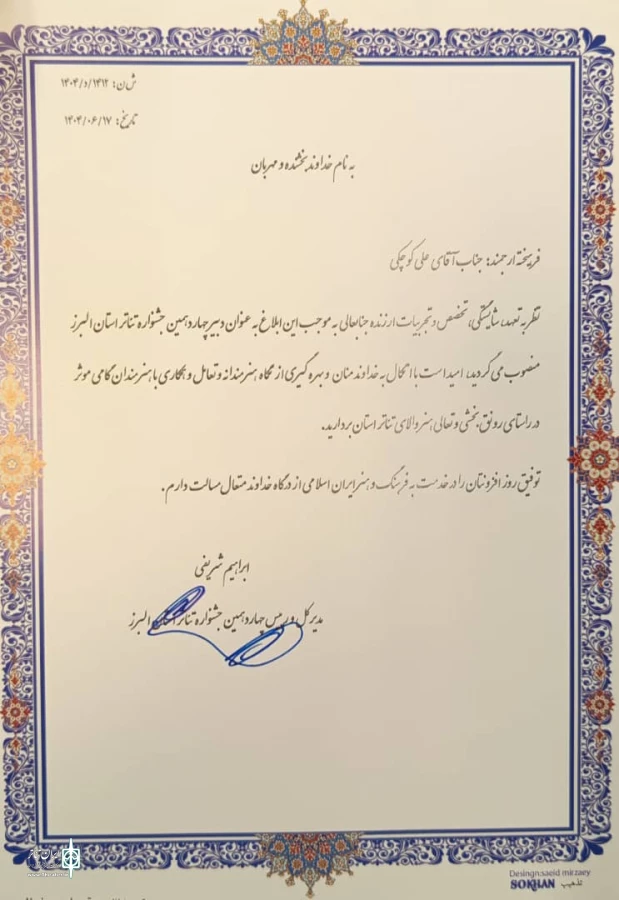 ش ن: ۱۴۱۲/د/۱۴۰۴
تاریخ: ۱۴۰۴/۰۶/۱۷
به نام خداوند بخشنده و مهربان
فرهیخته ارجمند: جناب آقای علی کوچکی
نظر به تعهد، شایستگی، تخصص و تجربیات ارزنده جنابعالی به موجب این ابلاغ به عنوان دبیر چهاردهمین جشنواره تئاتر استان البرز
منصوب می گردید، امید است با اتکال به خداوند منان و بهره گیری از نگاه هنرمندانه و تعامل و همکاری با هنرمندان گامی موثر
در راستای رونق بخشی و تعالی هنر والای تئاتر استان بردارید.
توفیق روز افزونتان را در خدمت به فرهنگ و هنر ایران اسلامی از درگاه خداوند متعال مسالت دارم.
ابراهیم شریفی
مدیر کل و رییس چهاردهمین جشنواره تئاتر استان البرز
Desingn:saeid mirzaey
SOKHAN تذهیب